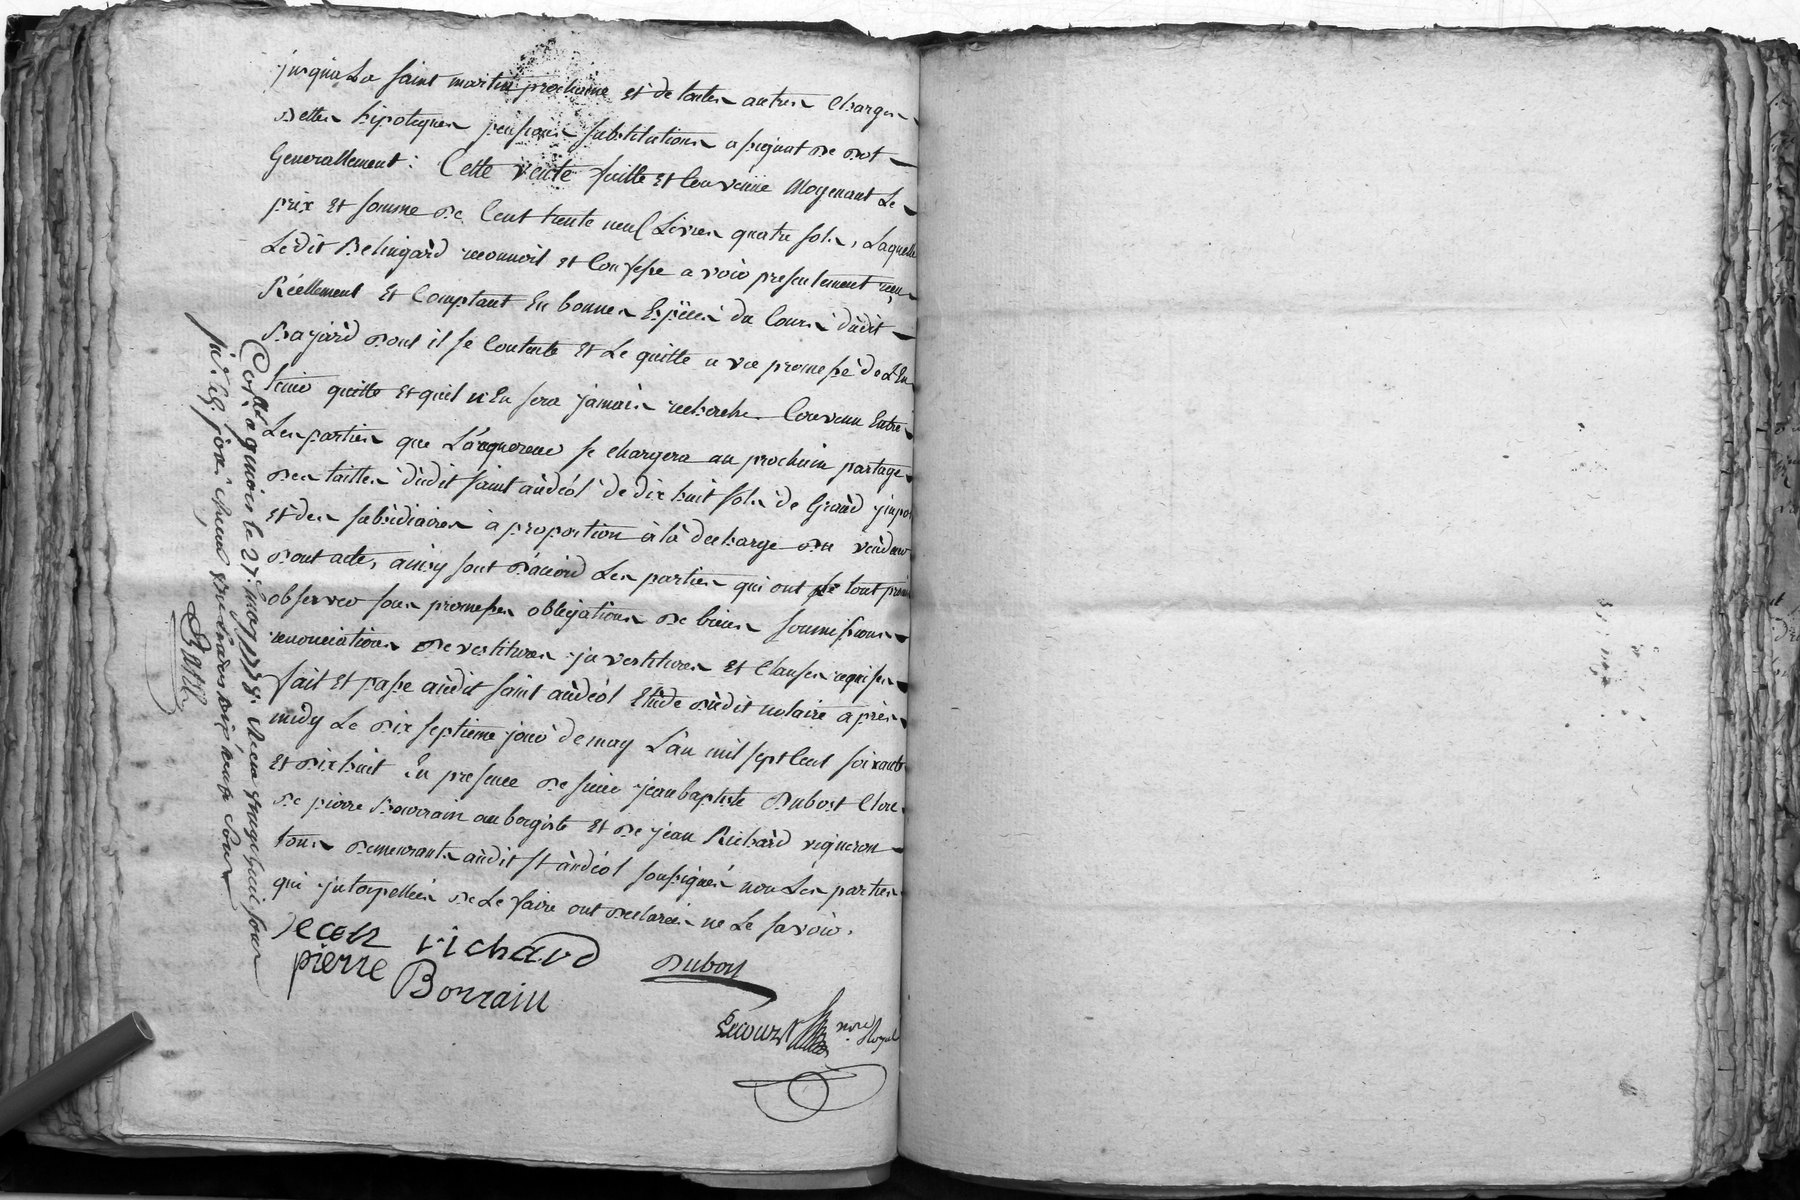 jusqua La saint martin prochaine et de toutes autres charges
dettes hipoteques pensions substitutions assignat de dot
Generallement : Cette vente faitte et Convenüe Moyenant Le
prix et somme de Cent trente neuf Livres quatre sols, Laquelle
Ledit Belingard reconnoit et Confesse avoir presentement reçu
Réellement et Comptant En bonnes Espèces du Cours dudit
Bayard dont il se Contente et Le quitte avec promesse de L'En
tenir quitte et quil n'En sera jamais recherche Convenu Entre
Les parties que L'acquereur se chargera au prochain partage
des tailles dudit saint andéol de dix huit sols de Grand impot
et des subsidiaires à proportion à la decharge du vendeur
dont acte, ainsy sont d'acord Les parties qui ont le tout promis
observer sous promesses obligations de biens soumissions
renonciations devestitures investitures et Clauses requises
fait et passé audit saint andéol Etude dudit notaire après
midy Le dix septieme jour de may L'an mil sept Cent soixante
et dix huit En presence de sieur jean baptiste Dubost Clerc
de pierre Bourrain aubergiste et de jean Richard vigneron
tous demeurants audit st andéol soussignés non Les parties
qui interpellées de Le faire ont declarées ne Le savoir.
Jean richard
pierre Borrain
Dubost
nore Royal
le 27 may 1778